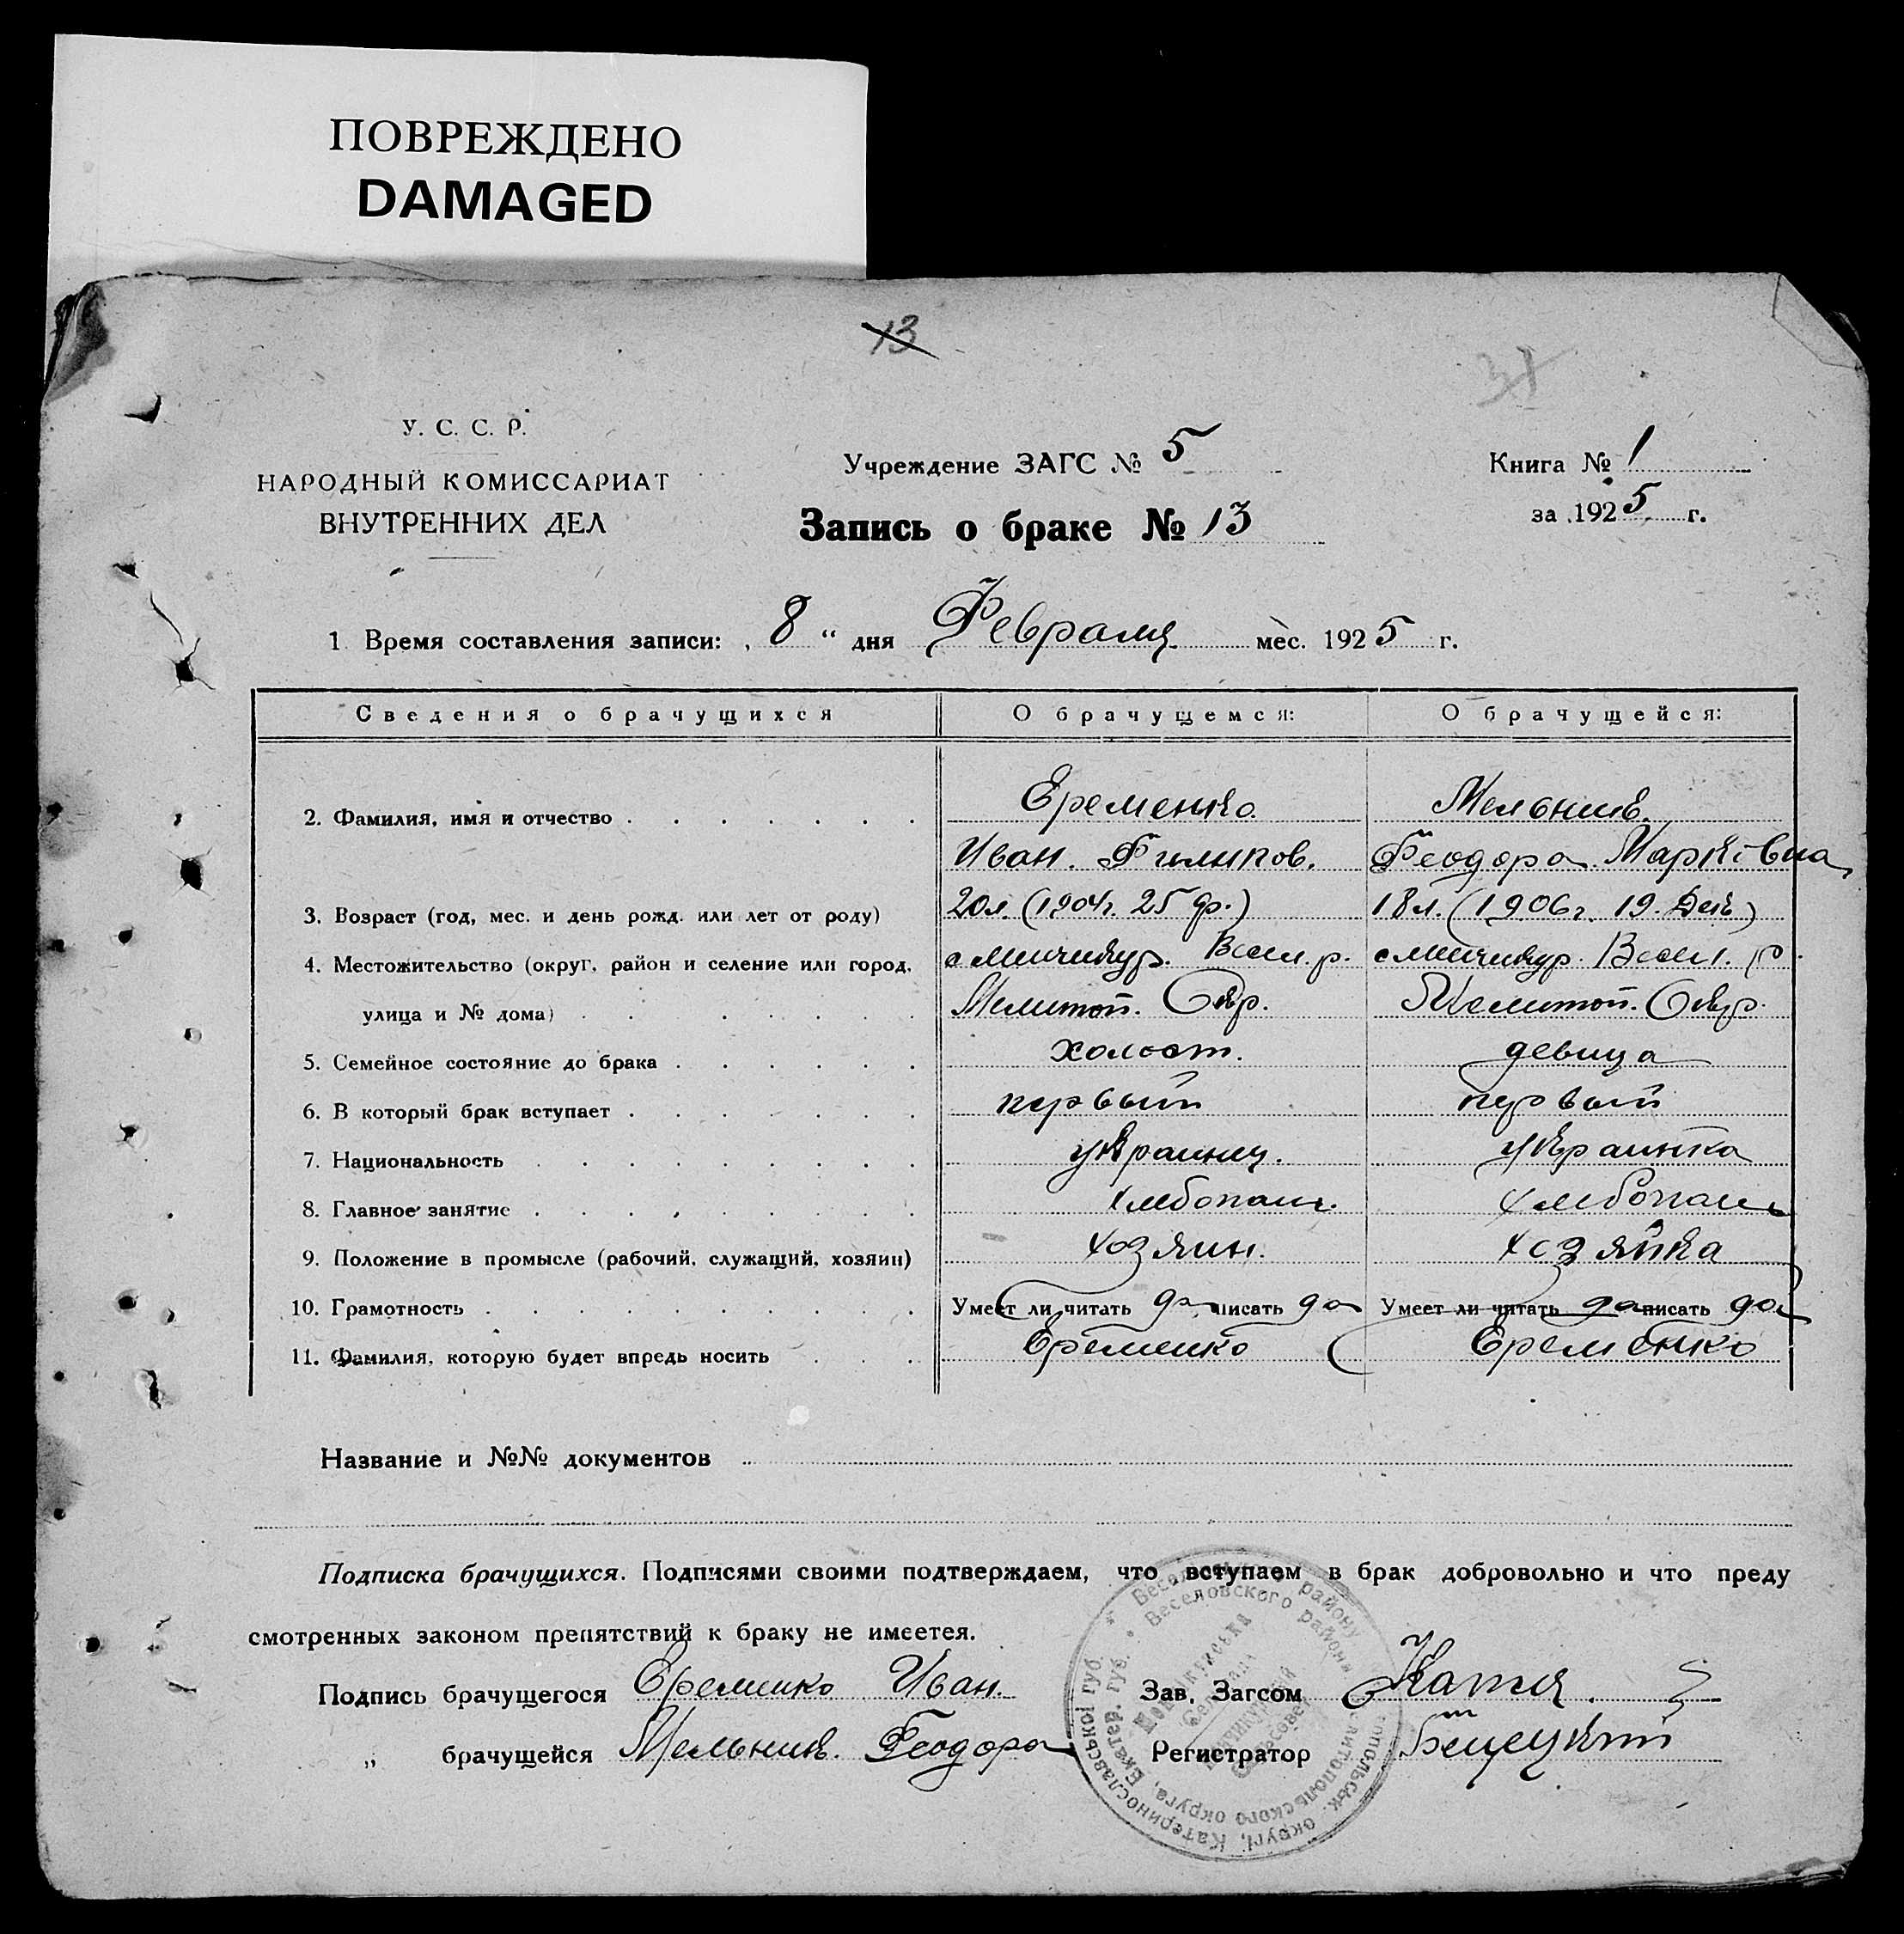 ПОВРЕЖДЕНО
DAMAGED
13
31
У. С. С. Р.
НАРОДНЫЙ КОМИССАРИАТ
ВНУТРЕННИХ ДЕЛ
Учреждение ЗАГС № 5
Запись о браке № 13
Книга № 1
за 1925 г.
1 Время составления записи: „ 8 “ дня Февраля мес. 1925 г.
Сведения о брачущихся О брачущемся: О брачущейся:
2. Фамилия, имя и отчество Еременко Мельник
Иван. Филипов. Феодора Марківна
3. Возраст (год, мес. и день рожд. или лет от роду) 20л. (1904г. 25 фр.) 18л. (1906г. 19. Дек)
4. Местожительство (округ, район и селение или город, с Менчикур. Весел. р. с Менчикур. Весел. р.
улица и № дома) Мелитоп. Окр. Мелитоп. Окр.
5. Семейное состояние до брака холост. девица
6. В который брак вступает первый первый
7. Национальность украинец. украинка
8. Главное занятие хлебопаш. хлебопаш
9. Положение в промысле (рабочий, служащий, хозяин) хозяин. хозяйка
10. Грамотность Умеет ли читать да писать да Умеет ли читать да писать да
11. Фамилия, которую будет впредь носить Еременко Еременко
Название и №№ документов
Подписка брачущихся. Подписями своими подтверждаем, что вступаем в брак добровольно и что преду
смотренных законом препятствий к браку не имеетея.
Подпись брачущегося Еременко Иван. Зав. Загсом
„ брачущейся Мельник. Феодора Регистратор
Веселовского района
Екатер. губ.
Катеринославської губ.